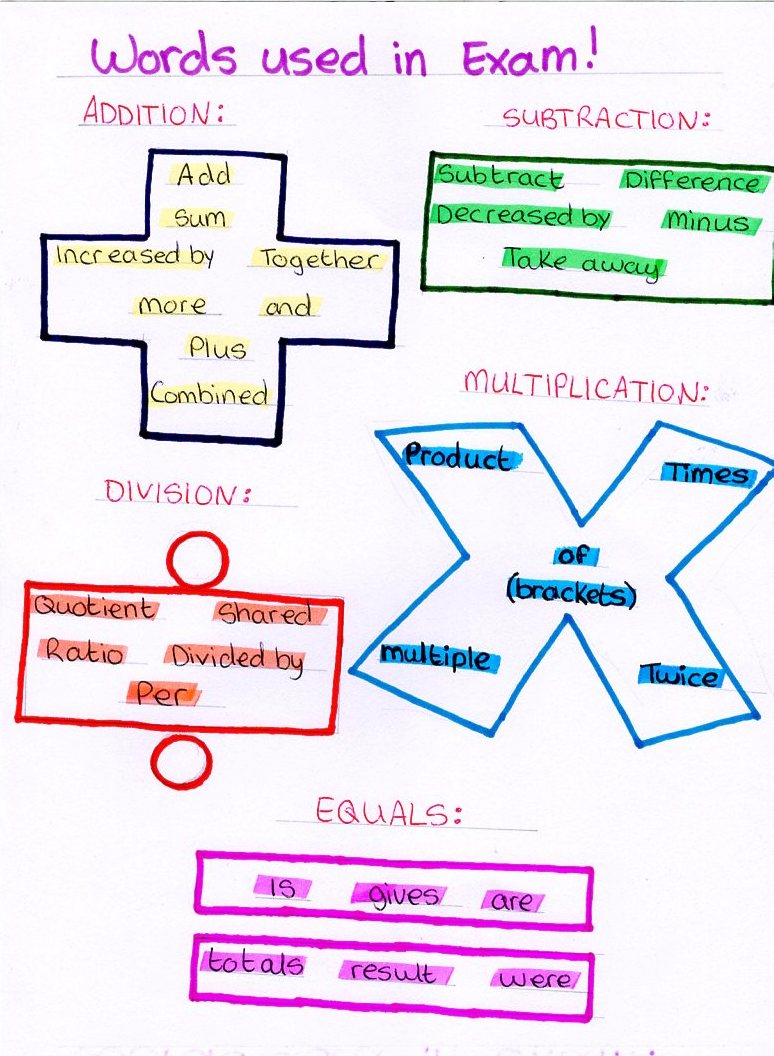 Words used in Exam!
ADDITION:
Add
Sum
Increased by Together
more and
Plus
Combined
SUBTRACTION:
Subtract Difference
Decreased by minus
Take away
MULTIPLICATION:
Product Times
of
(brackets)
multiple Twice
DIVISION:
Quotient Shared
Ratio Divided by
Per
EQUALS:
is gives are
totals result were